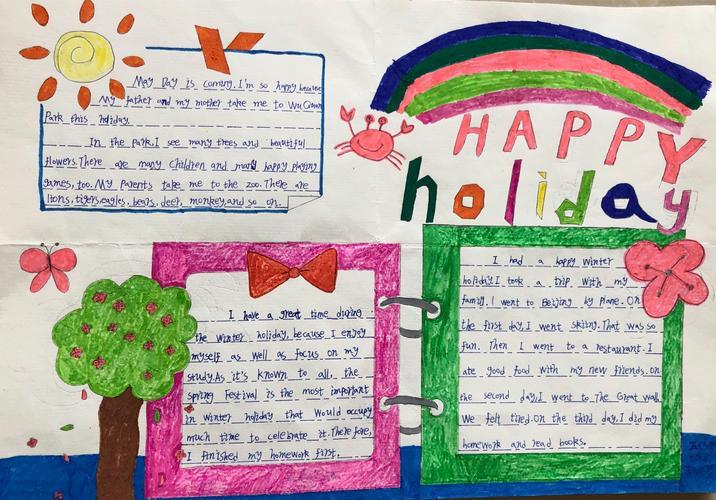 HAPPY
holiday
May Day is coming. I'm so happy because
My father and my mother take me to
Park this holiday.
In the Park, I see many trees and beautiful
flowers. There are many Children and many happy playing
games, too. My Parents take me to the zoo. There are
lions, tigers, eagles, bears, deer, monkey, and so on.
I have a great time during
the winter holiday, because I enjoy
myself as well as focus on my
study. As it's known to all, the
spring Festival is the most important
in winter holiday that would occupy
much time to celebrate it. Therefore,
I finished my homework first.
I had a happy winter
holiday. I took a trip with my
family. I went to Beijing by plane. On
the first day, I went skiing. That was so
fun. Then I went to a restaurant. I
ate good food with my new friends. on
the second day, I went to The Great wall.
We felt tired. On the third day, I did my
homework and read books.